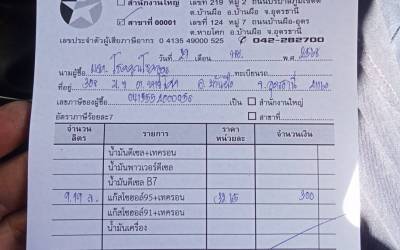 สำนักงานใหญ่ เลขที่ 219 หมู่ 2
ต.บ้านผือ อ.บ้านผือ จ.อุดรธานี
สาขาที่ 00001 เลขที่ 124 หมู่ 7 ถนนบ้านผือ-อุดร
ต.หายโศก อ.บ้านผือ จ.อุดรธานี
เลขประจำตัวผู้เสียภาษีอากร 0 4135 49000 525 042-282700
วันที่ 29 เดือน พ.ศ.
นามผู้ซื้อ ทะเบียนรถ
ที่อยู่ 308 จ.อุดรธานี
เลขภาษีของผู้ซื้อ เป็น สำนักงานใหญ่
อัตราภาษีร้อยละ7 สาขาที่
จำนวน ลิตร รายการ ราคา หน่วยละ จำนวนเงิน
น้ำมันดีเซล+เทครอน
น้ำมันพาวเวอร์ดีเซล
น้ำมันดีเซล B7
9.19 ล. แก๊สโซฮอล์95+เทครอน 32.65 300
แก๊สโซฮอล์91+เทครอน
น้ำมันเครื่อง